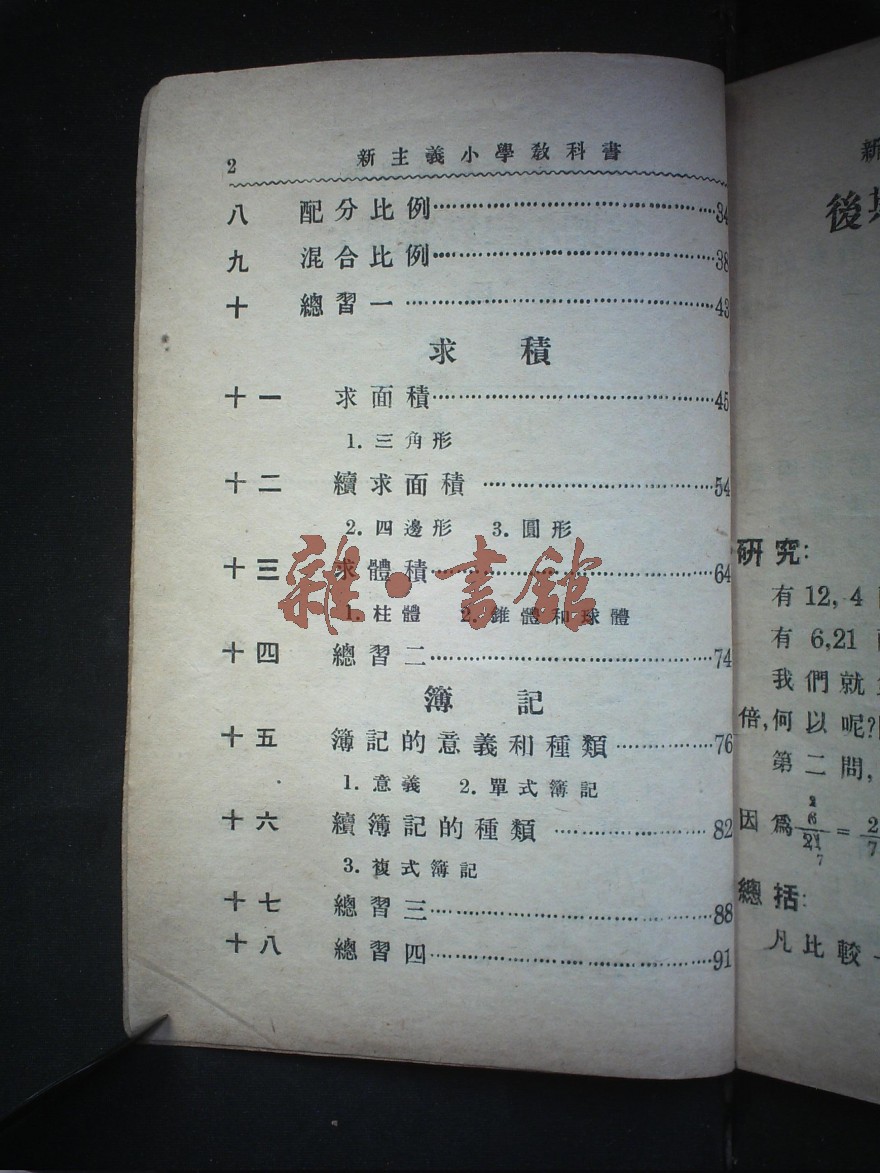 2 新主義小學教科書
八 配分比例……34
九 混合比例……38
十 總習一……43
求積
十一 求面積……45
1. 三角形
十二 續求面積……54
2. 四邊形 3. 圓形
十三 求體積……64
1. 柱體 2. 錐體和球體
十四 總習二……74
簿記
十五 簿記的意義和種類……76
1. 意義 2. 單式簿記
十六 續簿記的種類……82
3. 複式簿記
十七 總習三……88
十八 總習四……91
雜·書館
新
後
研究:
有 12, 4
有 6,21
我們就
倍,何以呢?
第二問,
因爲 6/21 = 2/7
總括:
凡比較